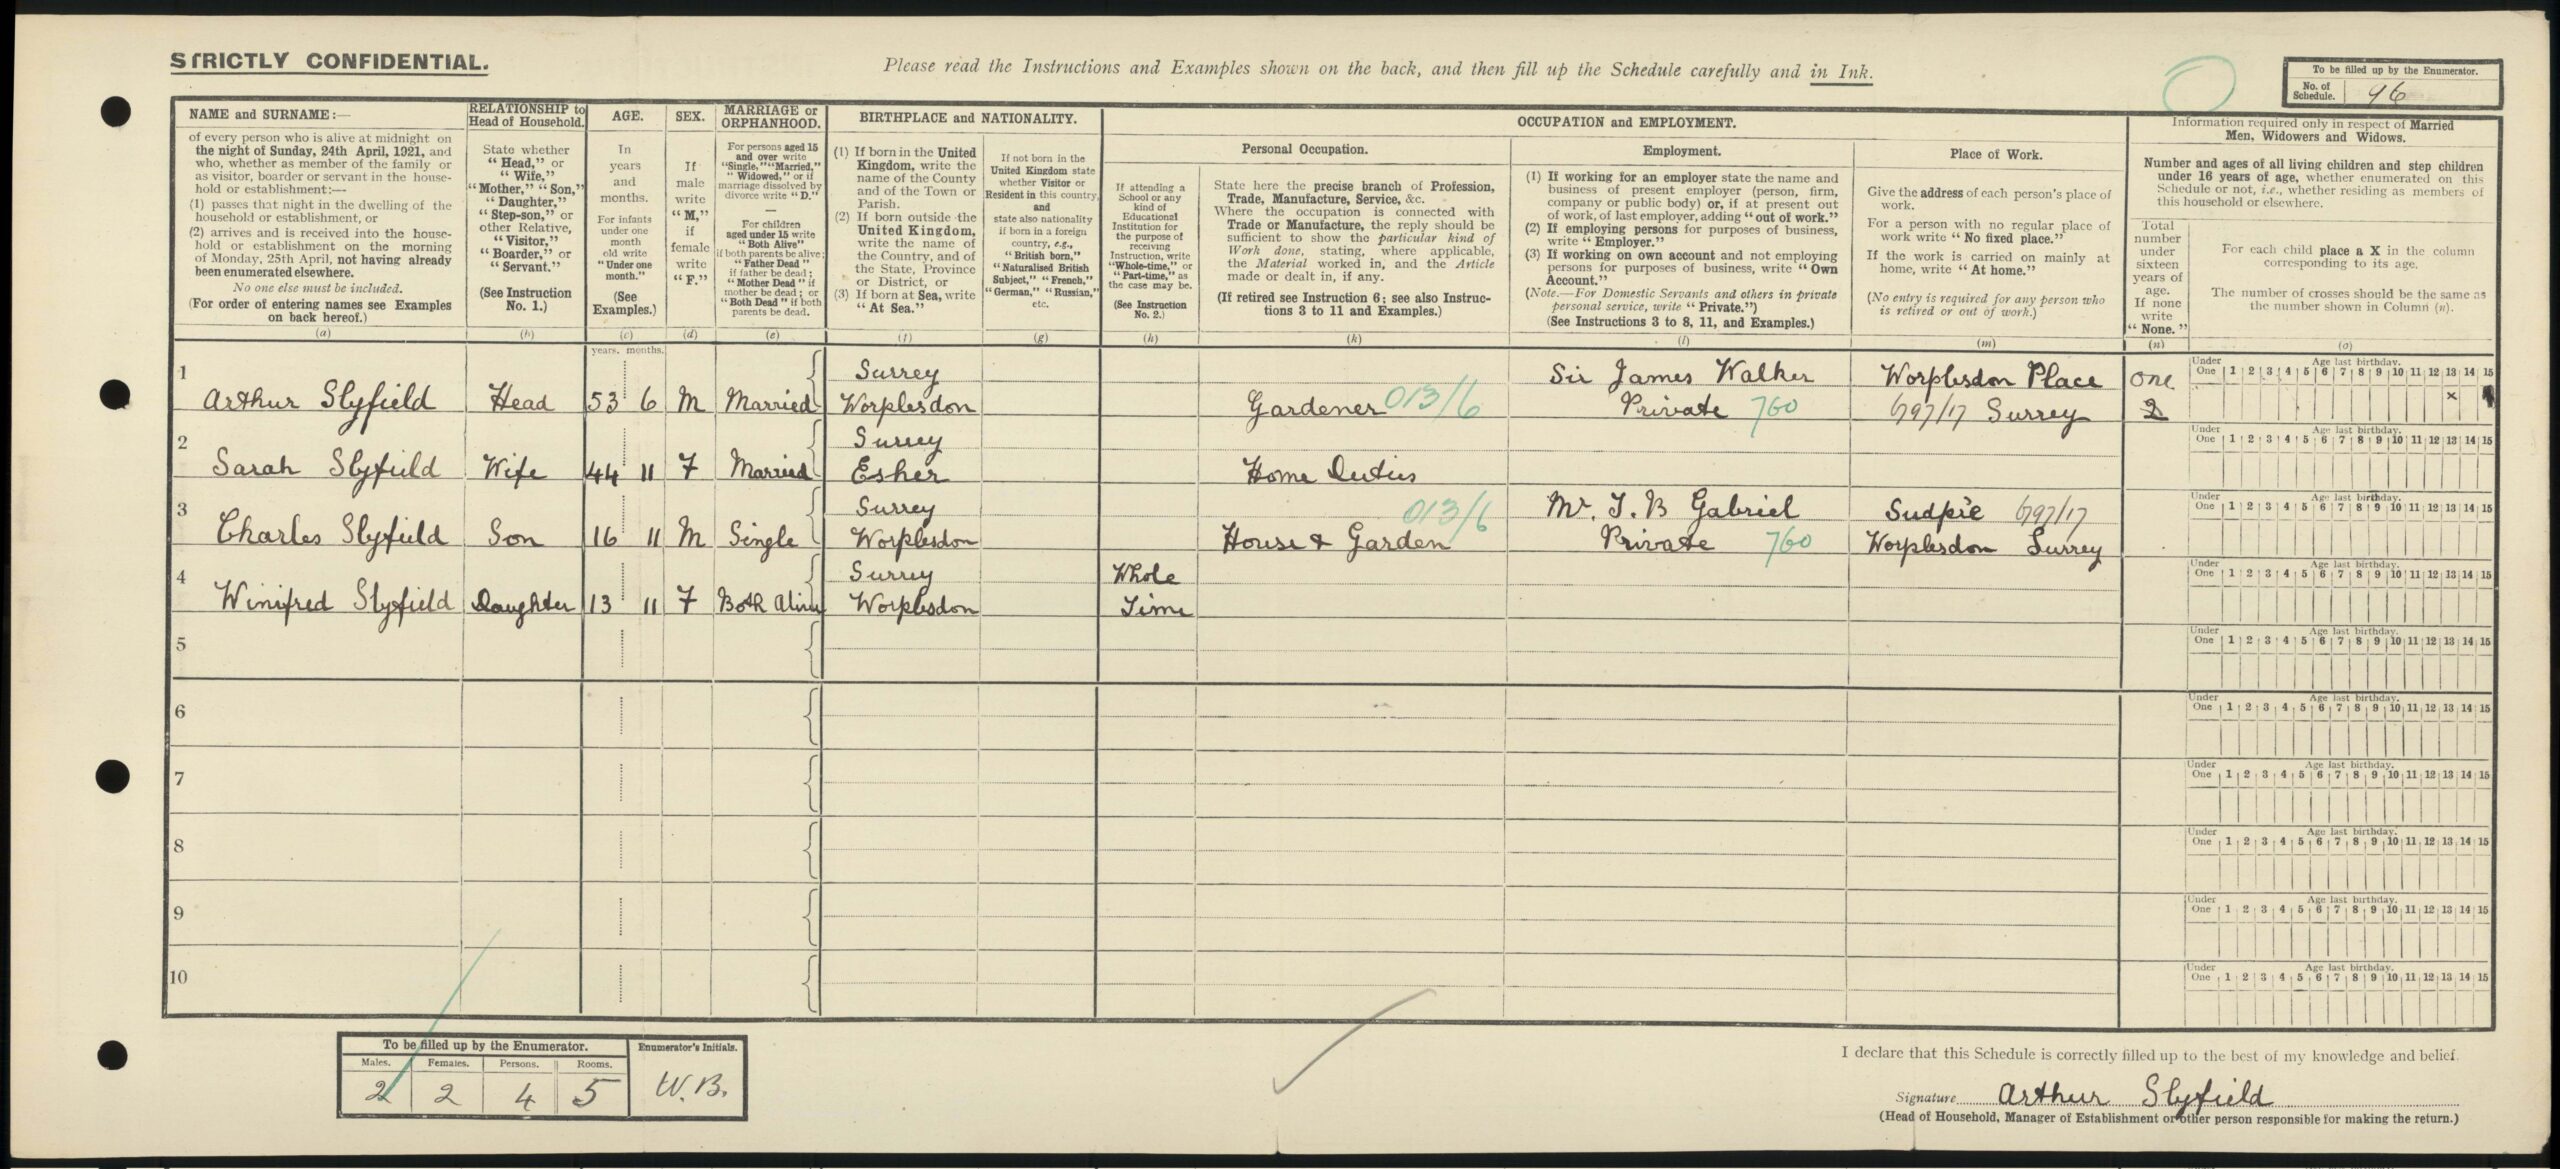 STRICTLY CONFIDENTIAL.
Please read the Instructions and Examples shown on the back, and then fill up the Schedule carefully and in Ink.
To be filled up by the Enumerator.
No. of Schedule. 96
NAME and SURNAME:—
of every person who is alive at midnight on
the night of Sunday, 24th April, 1921, and
who, whether as member of the family or
as visitor, boarder or servant in the house-
hold or establishment:—
(1) passes that night in the dwelling of the
household or establishment, or
(2) arrives and is received into the house-
hold or establishment on the morning
of Monday, 25th April, not having already
been enumerated elsewhere.
No one else must be included.
(For order of entering names see Examples
on back hereof.)
(a)
RELATIONSHIP to
Head of Household.
State whether
"Head," or
"Wife,"
"Mother," "Son,"
"Daughter,"
"Step-son," or
other Relative,
"Visitor,"
"Boarder," or
"Servant."
(See Instruction
No. 1.)
(b)
AGE.
In
years
and
months.
For infants
under one
month
old write
"Under one
month."
(See
Examples.)
(c)
SEX.
If
male
write
"M,"
if
female
write
"F."
(d)
MARRIAGE or
ORPHANHOOD.
For persons aged 15
and over write
"Single," "Married,"
"Widowed," or if
marriage dissolved by
divorce write "D."
—
For children
aged under 15 write
"Both Alive"
if both parents be alive;
"Father Dead"
if father be dead;
"Mother Dead" if
mother be dead; or
"Both Dead" if both
parents be dead.
(e)
BIRTHPLACE and NATIONALITY.
(1) If born in the United
Kingdom, write the
name of the County
and of the Town or
Parish.
(2) If born outside the
United Kingdom,
write the name of
the Country, and of
the State, Province
or District, or
(3) If born at Sea, write
"At Sea."
(f)
If not born in the
United Kingdom state
whether Visitor or
Resident in this country,
and
state also nationality
if born in a foreign
country, e.g.,
"British born,"
"Naturalised British
Subject," "French,"
"German," "Russian,"
etc.
(g)
OCCUPATION and EMPLOYMENT.
If attending a
School or any
kind of
Educational
Institution for
the purpose of
receiving
Instruction, write
"Whole-time," or
"Part-time," as
the case may be.
(See Instruction
No. 2.)
(h)
Personal Occupation.
State here the precise branch of Profession,
Trade, Manufacture, Service, &c.
Where the occupation is connected with
Trade or Manufacture, the reply should be
sufficient to show the particular kind of
Work done, stating, where applicable,
the Material worked in, and the Article
made or dealt in, if any.
(If retired see Instruction 6; see also Instruc-
tions 3 to 11 and Examples.)
(k)
Employment.
(1) If working for an employer state the name and
business of present employer (person, firm,
company or public body) or, if at present out
of work, of last employer, adding "out of work."
(2) If employing persons for purposes of business,
write "Employer."
(3) If working on own account and not employing
persons for purposes of business, write "Own
Account."
(Note.—For Domestic Servants and others in private
personal service, write "Private.")
(See Instructions 3 to 8, 11, and Examples.)
(l)
Place of Work.
Give the address of each person's place of
work.
For a person with no regular place of
work write "No fixed place."
If the work is carried on mainly at
home, write "At home."
(No entry is required for any person who
is retired or out of work.)
(m)
Information required only in respect of Married
Men, Widowers and Widows.
Number and ages of all living children and step children
under 16 years of age, whether enumerated on this
Schedule or not, i.e., whether residing as members of
this household or elsewhere.
Total
number
under
sixteen
years of
age.
If none
write
"None."
(n)
For each child place a X in the column
corresponding to its age.
The number of crosses should be the same as
the number shown in Column (n).
(o)
years. months.
1 Surrey Sir James Walker Worplesdon Place one
Arthur Slyfield Head 53 6 M Married Worplesdon Gardener 013/6 Private 760 697/17 Surrey 2 x
Under One Age last birthday. 1 2 3 4 5 6 7 8 9 10 11 12 13 14 15
2 Surrey
Sarah Slyfield Wife 44 11 F Married Esher Home Duties
Under One Age last birthday. 1 2 3 4 5 6 7 8 9 10 11 12 13 14 15
3 Surrey 013/6 Mr. J. B Gabriel Sudpre 697/17
Charles Slyfield Son 16 11 M Single Worplesdon House & Garden Private 760 Worplesdon Surrey
Under One Age last birthday. 1 2 3 4 5 6 7 8 9 10 11 12 13 14 15
4 Surrey Whole
Winifred Slyfield Daughter 13 11 F Both Alive Worplesdon Time
Under One Age last birthday. 1 2 3 4 5 6 7 8 9 10 11 12 13 14 15
5
Under One Age last birthday. 1 2 3 4 5 6 7 8 9 10 11 12 13 14 15
6
Under One Age last birthday. 1 2 3 4 5 6 7 8 9 10 11 12 13 14 15
7
Under One Age last birthday. 1 2 3 4 5 6 7 8 9 10 11 12 13 14 15
8
Under One Age last birthday. 1 2 3 4 5 6 7 8 9 10 11 12 13 14 15
9
Under One Age last birthday. 1 2 3 4 5 6 7 8 9 10 11 12 13 14 15
10
Under One Age last birthday. 1 2 3 4 5 6 7 8 9 10 11 12 13 14 15
To be filled up by the Enumerator.
Males. Females. Persons. Rooms.
2 2 4 5
Enumerator's Initials.
W.B.
I declare that this Schedule is correctly filled up to the best of my knowledge and belief.
Signature Arthur Slyfield
(Head of Household, Manager of Establishment or other person responsible for making the return.)